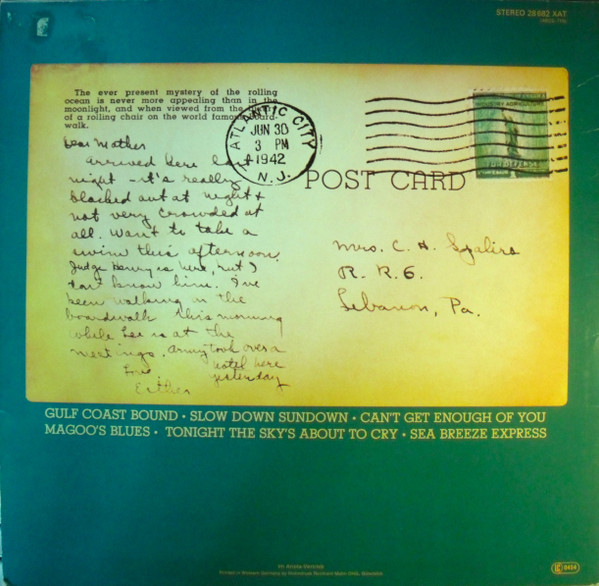 STEREO 28 682 XAT
The ever present mystery of the rolling
ocean is never more appealing than in the
moonlight, and when viewed from the
of a rolling chair on the world famous board-
walk.
ATLANTIC CITY
JUN 30
3 PM
1942
N.J.
POST CARD
FOR DEFENSE
Dear Mother
Arrived here last
night - it's really
blacked out at night &
not very crowded at
all. Want to take a
swim this afternoon.
Judge Henry is here, but I
don't know him. I've
been walking on the
boardwalk this morning
while Lee is at the
meetings. Army took over a
hotel here
yesterday
Love
Esther
Mrs. C. H.
R. R. 6.
Lebanon, Pa.
GULF COAST BOUND • SLOW DOWN SUNDOWN • CAN'T GET ENOUGH OF YOU
MAGOO'S BLUES • TONIGHT THE SKY'S ABOUT TO CRY • SEA BREEZE EXPRESS